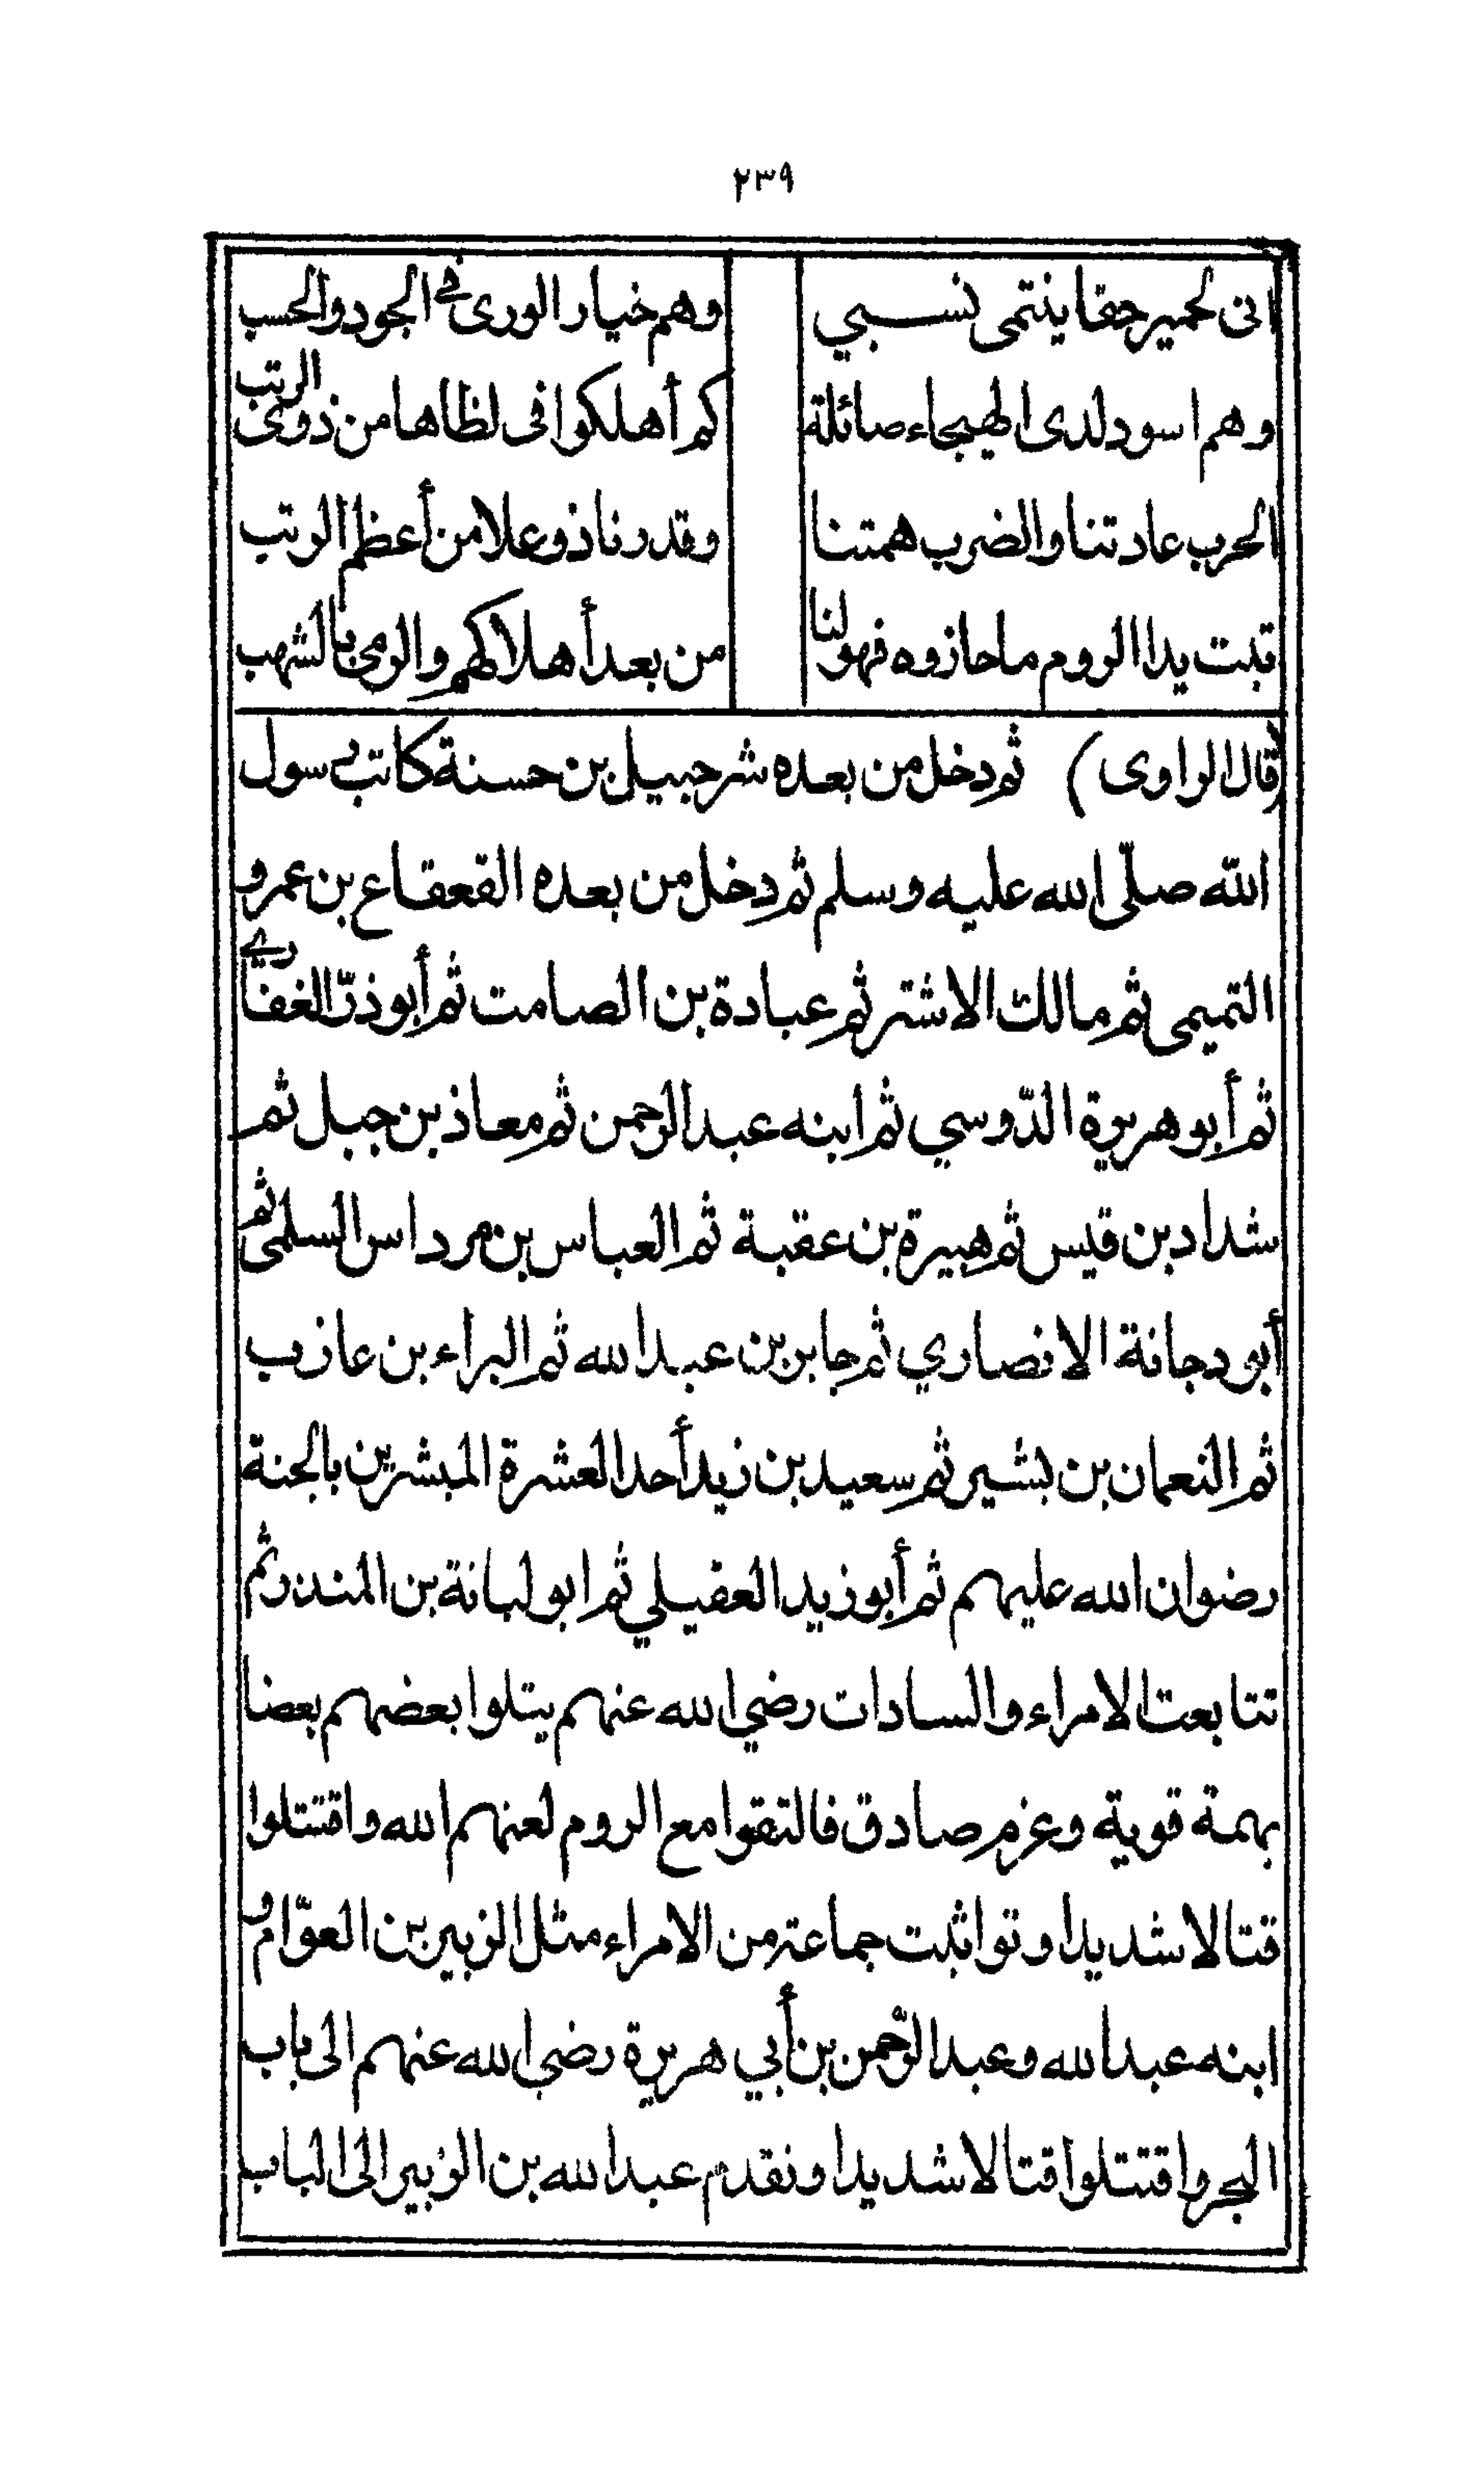 ٢٣٩
انى لحمير حقا ينتمى نسبي وهم خيار الورى فى الجود والحسب
وهم اسود لدى الهيجاء صائلة كم أهلكوا فى لظاها من ذوى الرتب
الحرب عادتنا والضرب همتنا وقدرنا ذو علا من أعظم الرتب
تبت يدا الروم ما حازوه فهو لنا من بعد أهلاكهم والرمى بالشهب
(قال الراوى) ثم دخل من بعده شرحبيل بن حسنة كاتب رسول
الله صلّى الله عليه وسلم ثم دخل من بعده القعقاع بن عمرو
التميمى ثم مالك الاشتر ثم عبادة بن الصامت ثم أبو ذرّ الغفاري
ثم أبو هريرة الدّوسي ثم ابنه عبد الرحمن ثم معاذ بن جبل ثم
شداد بن قيس ثم هبيرة بن عقبة ثم العباس بن مرداس السلمى ثم
أبو دجانة الانصاري ثم جابر بن عبد الله ثم البراء بن عازب
ثم النعمان بن بشير ثم سعيد بن زيد أحد العشرة المبشرين بالجنة
رضوان الله عليهم ثم أبو زيد العقيلي ثم ابو لبانة بن المنذر ثم
تتابعت الامراء والسادات رضي الله عنهم يتلوا بعضهم بعضا
بهمة قوية وعزم صادق فالتقوا مع الروم لعنهم الله واقتتلوا
قتالا شديدا وتواثبت جماعة من الامراء مثل الزبير بن العوّام و
ابنه عبد الله وعبد الرّحمن بن أبي هريرة رضي الله عنهم الى باب
البحر واقتتلوا قتالا شديدا ونقدم عبد الله بن الزبير الى الباب